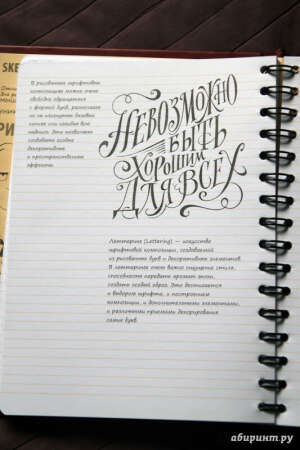 SKE
В рисованных шрифтовых
композициях можно очень
свободно обращаться
с формой букв, располагая
их на
или изгибая всю
надпись. Это позволяет
создавать особые
декоративные
и пространственные
эффекты.
НЕВОЗМОЖНО
БЫТЬ
ХОРОШИМ
ДЛЯ ВСЕХ
Леттеринг (Lettering) — искусство
шрифтовой композиции, создаваемой
из рисованных букв и декоративных элементов.
В леттеринге очень важно ощущение стиля,
способность передать аромат эпохи,
создать особый образ. Это достигается
и выбором шрифта, и построением
композиции, и дополнительными элементами,
и различными приемами декорирования
самих букв.
абиринт.ру